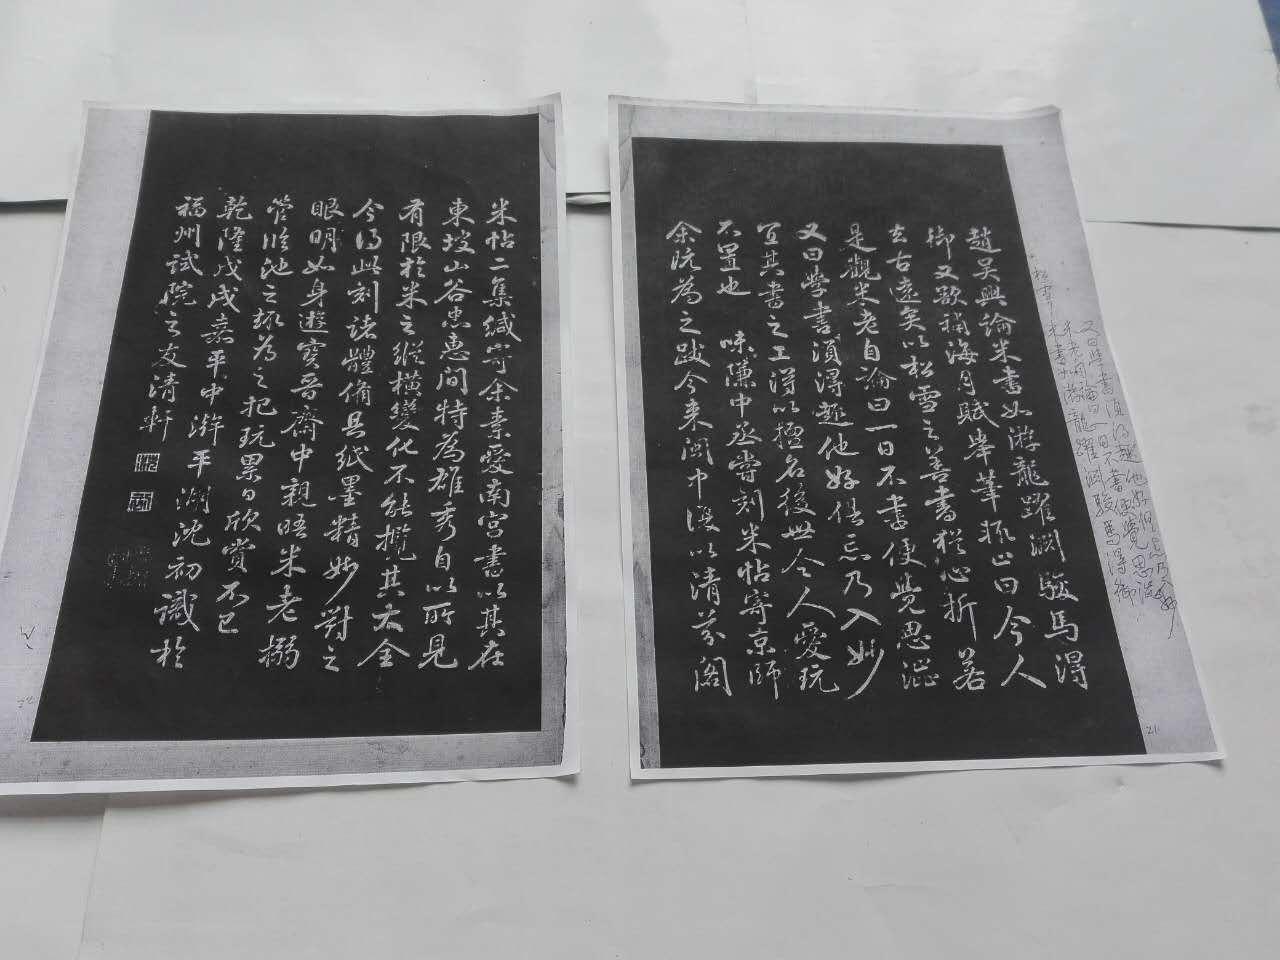 趙吴興論米書如游龍躍渊駿馬得
御又欲補海月賦舉筆輒止曰今人
去古遠矣以松雪之善書猶心折若
是觀米老自論曰一日不書便覺思澁
又曰學書須得趣他好俱忘乃入妙
宜其書之工得以擅名後世令人愛玩
不置也 味中丞嘗刻米帖寄京師
余既為之跋今来閩中復以清芬閣
米帖二集緘寄余素愛南宫書以其在
東坡山谷忠惠間特為雄秀自以所見
有限於米之縱横變化不能攬其大全
今得此刻諸體備具紙墨精妙對之
眼明如身遊寳晉齋中親晤米老搦
管臨池之頃為之把玩累日欣賞不已
乾隆戊戌嘉平中澣平湖沈初識於
福州試院之友清軒
又曰學書須得趣他好俱忘乃入妙
米老自論曰一日不書便覺思澁
米書如游龍躍渊駿馬得御
21